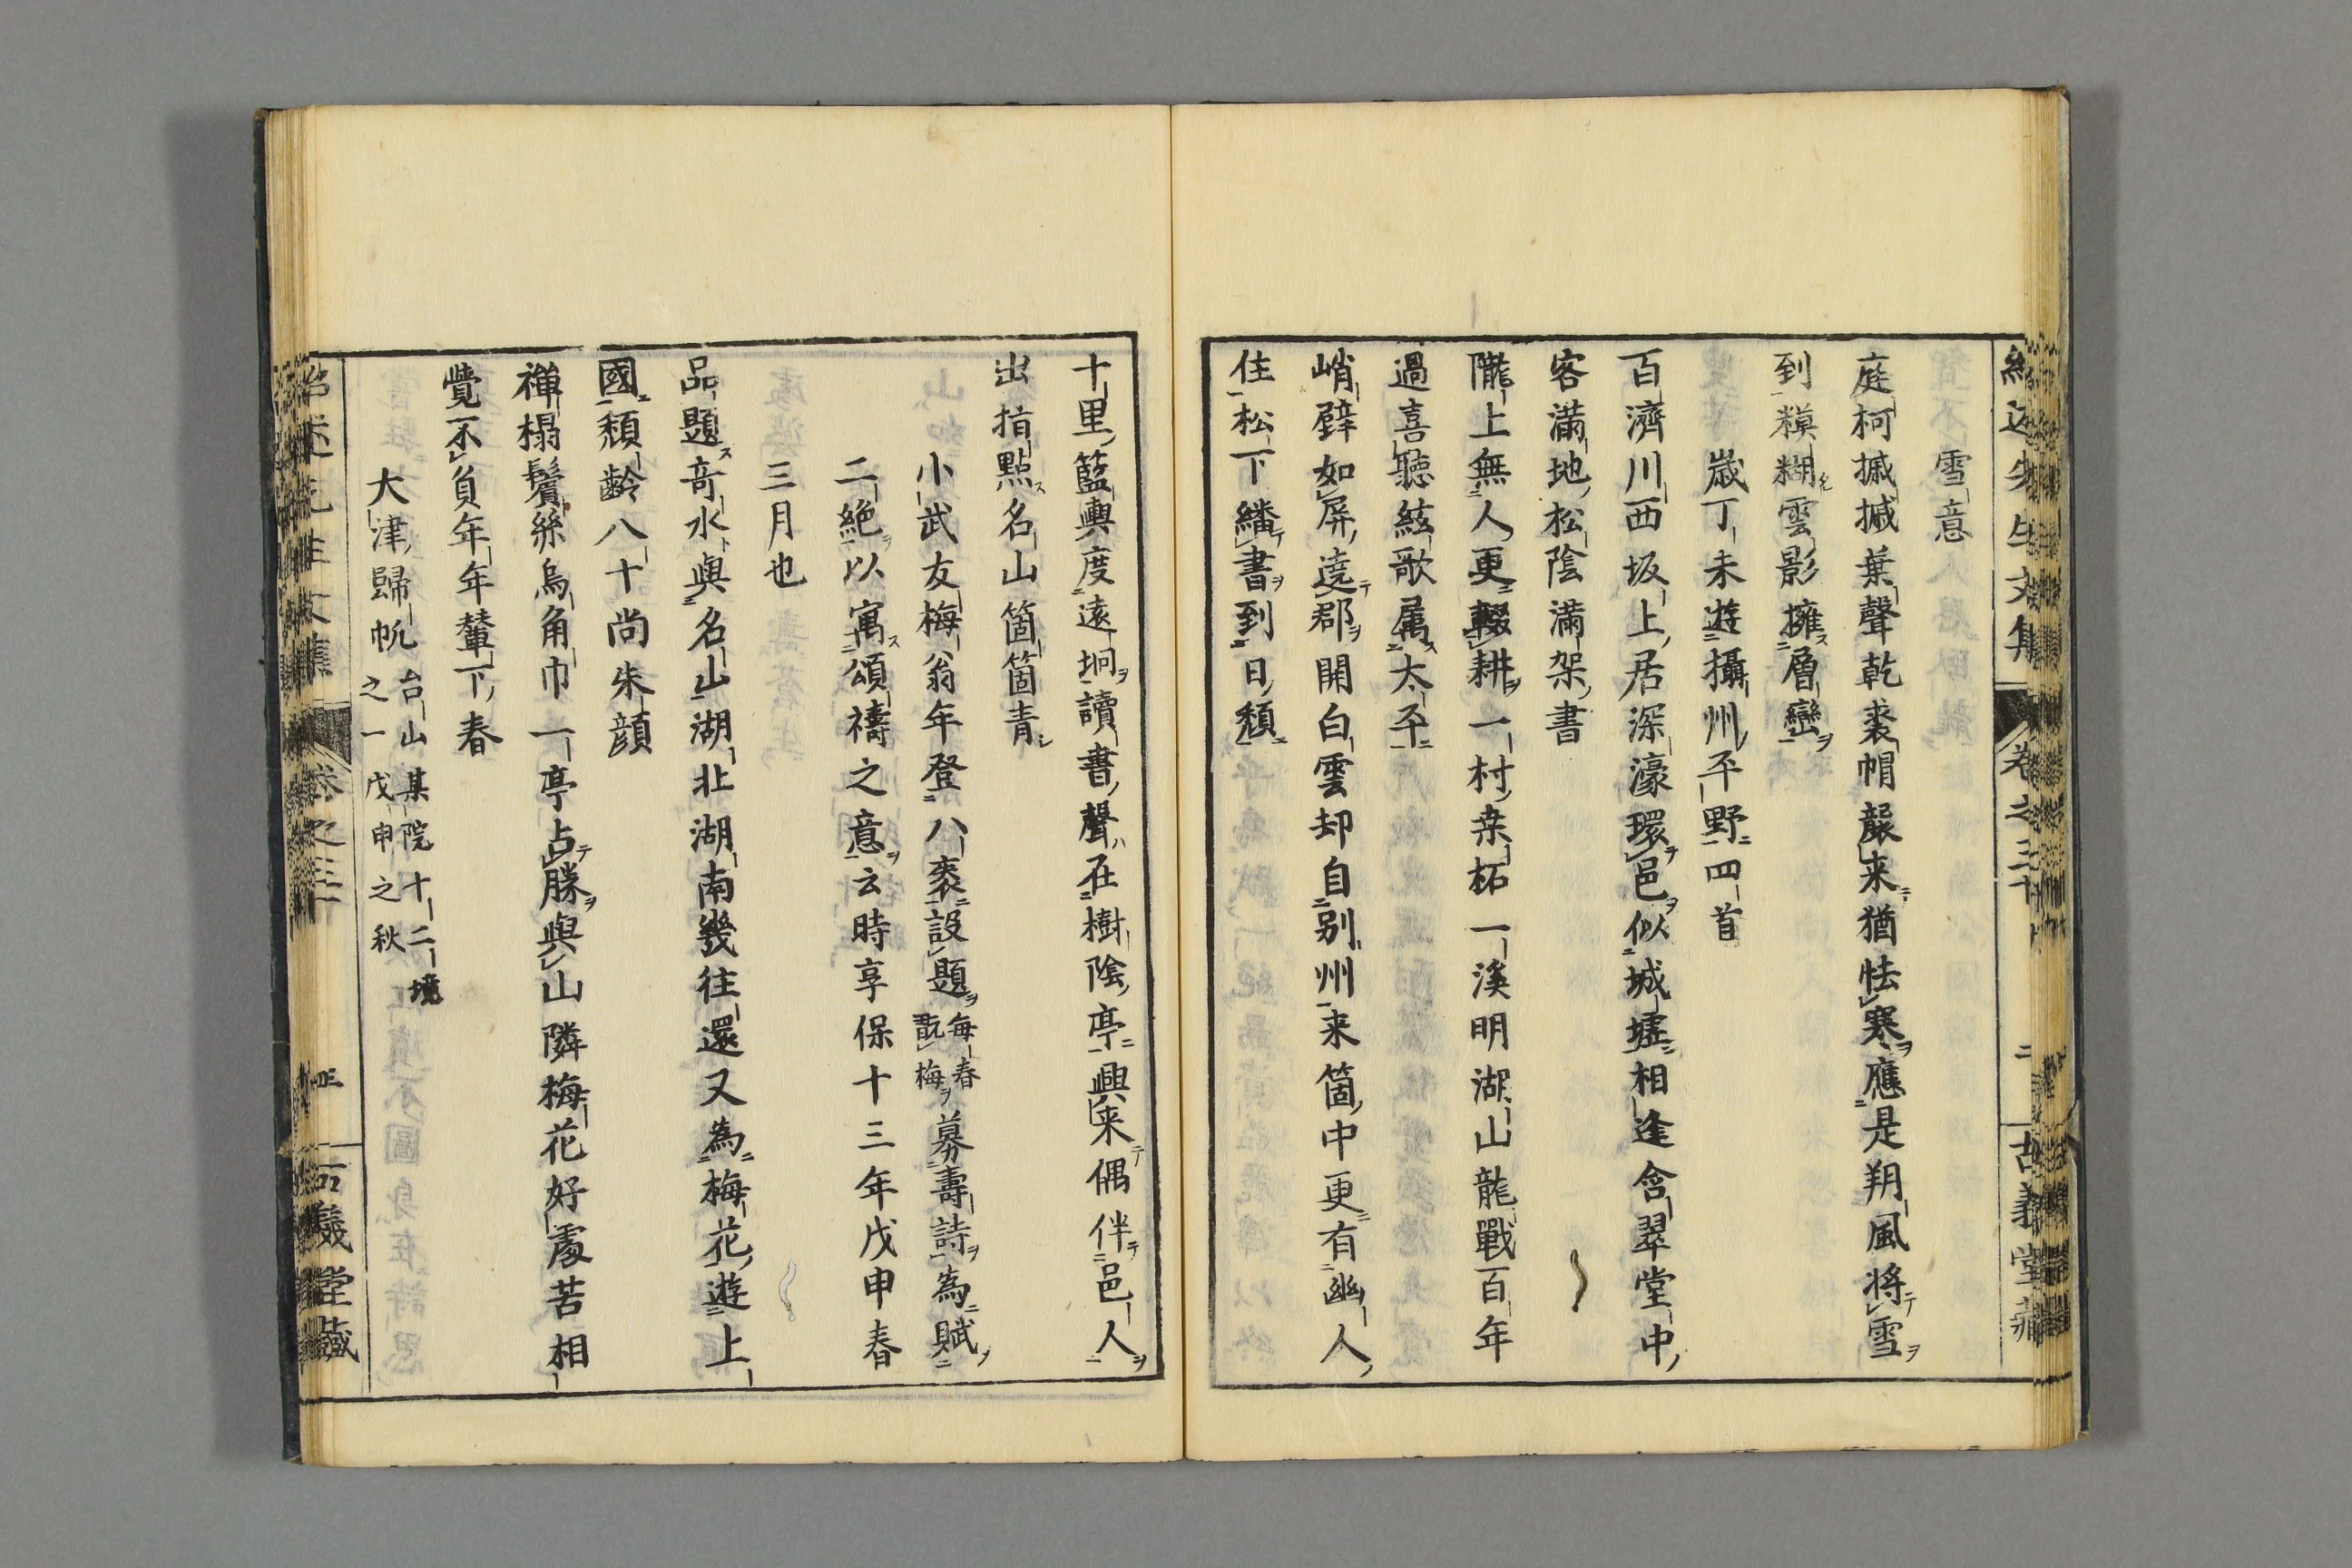 雪意
庭柯摵摵葉聲乾裘帽襲来猶怯寒應是朔風将雪
到糢糊雲影擁層巒
歳丁未遊攝州平野四首
百濟川西坂上居深濠環邑似城墟相逢含翠堂中
客滿地松陰滿架書
隴上無人更輟耕一村桒柘一溪明湖山龍戰百年
過喜聽絃歌属太平
峭壁如屏遶郡開白雲却自别州来箇中更有幽人
住松下繙書到日頽
十里籃輿度遠坰讀書聲在樹陰亭興来偶伴邑人
出指點名山箇箇青
小武友梅翁年登八袠設題每春翫梅募壽詩為賦
二絶以寓頌禱之意云時享保十三年戊申春
三月也
品題竒水與名山湖北湖南幾往還又為梅花遊上
國頽齡八十尚朱顔
禅榻鬢絲烏角巾一亭占勝與山隣梅花好處苦相
覺不負年年輦下春
大津歸帆台山某院十二境之一戊申之秋
卷之三十
二
古義堂藏